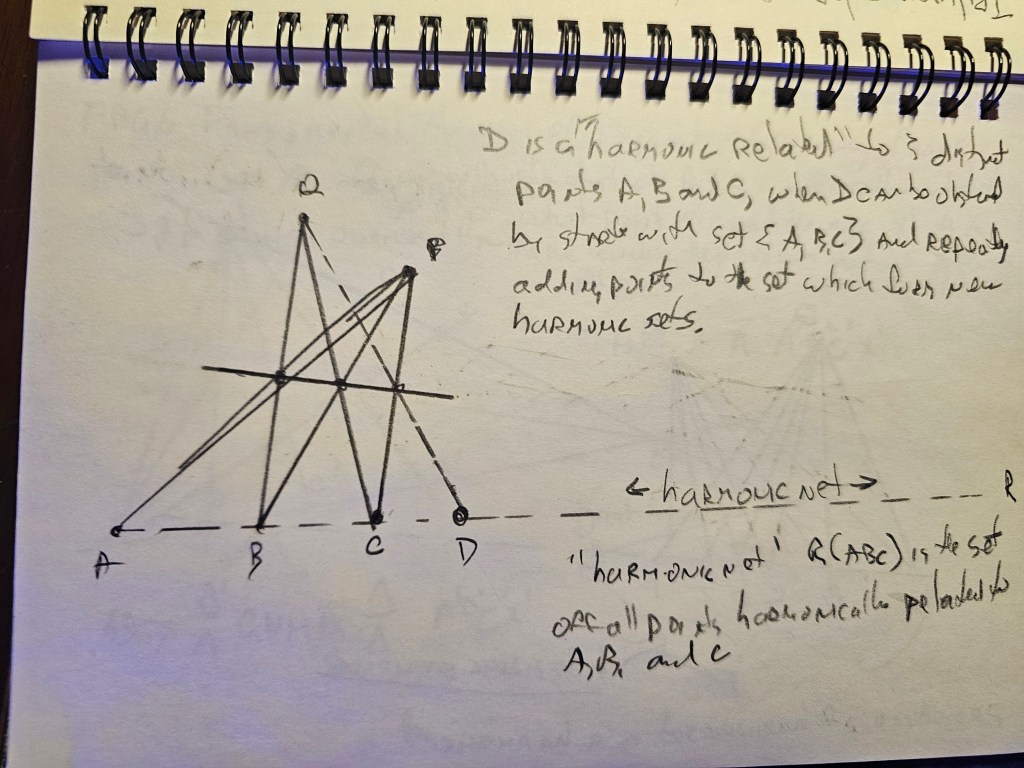 Q
P
A
B
C
D
D is a "harmonic related" to 3 distinct
points A, B and C, when D can be obtained
by start with set {A, B, C} and repeatedly
adding points to the set which form new
harmonic sets.
← harmonic net →
R
"harmonic net" R(ABC) is the set
off all points harmonically related to
A, B, and C